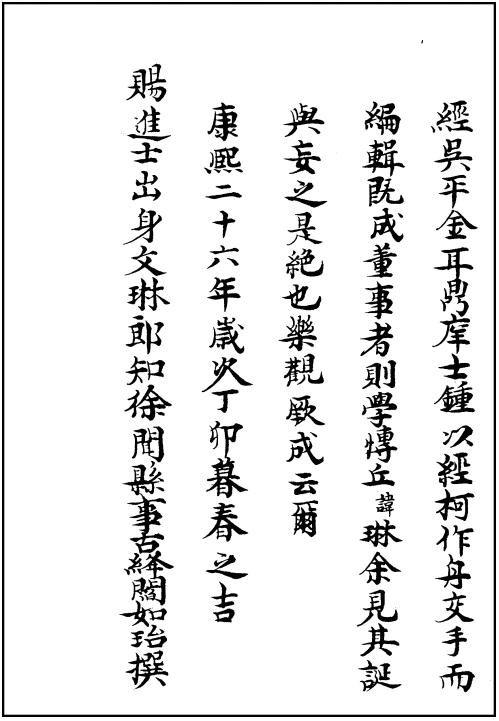 經吳平金耳鼎庠士鍾以經柯作舟交手而
編輯既成董事者則學博丘諱琳余見其誕
與妄之是絕也樂觀厥成云爾
康熙二十六年歲次丁卯暮春之吉
賜進士出身文琳郎知徐聞縣事古絳閻如珆撰